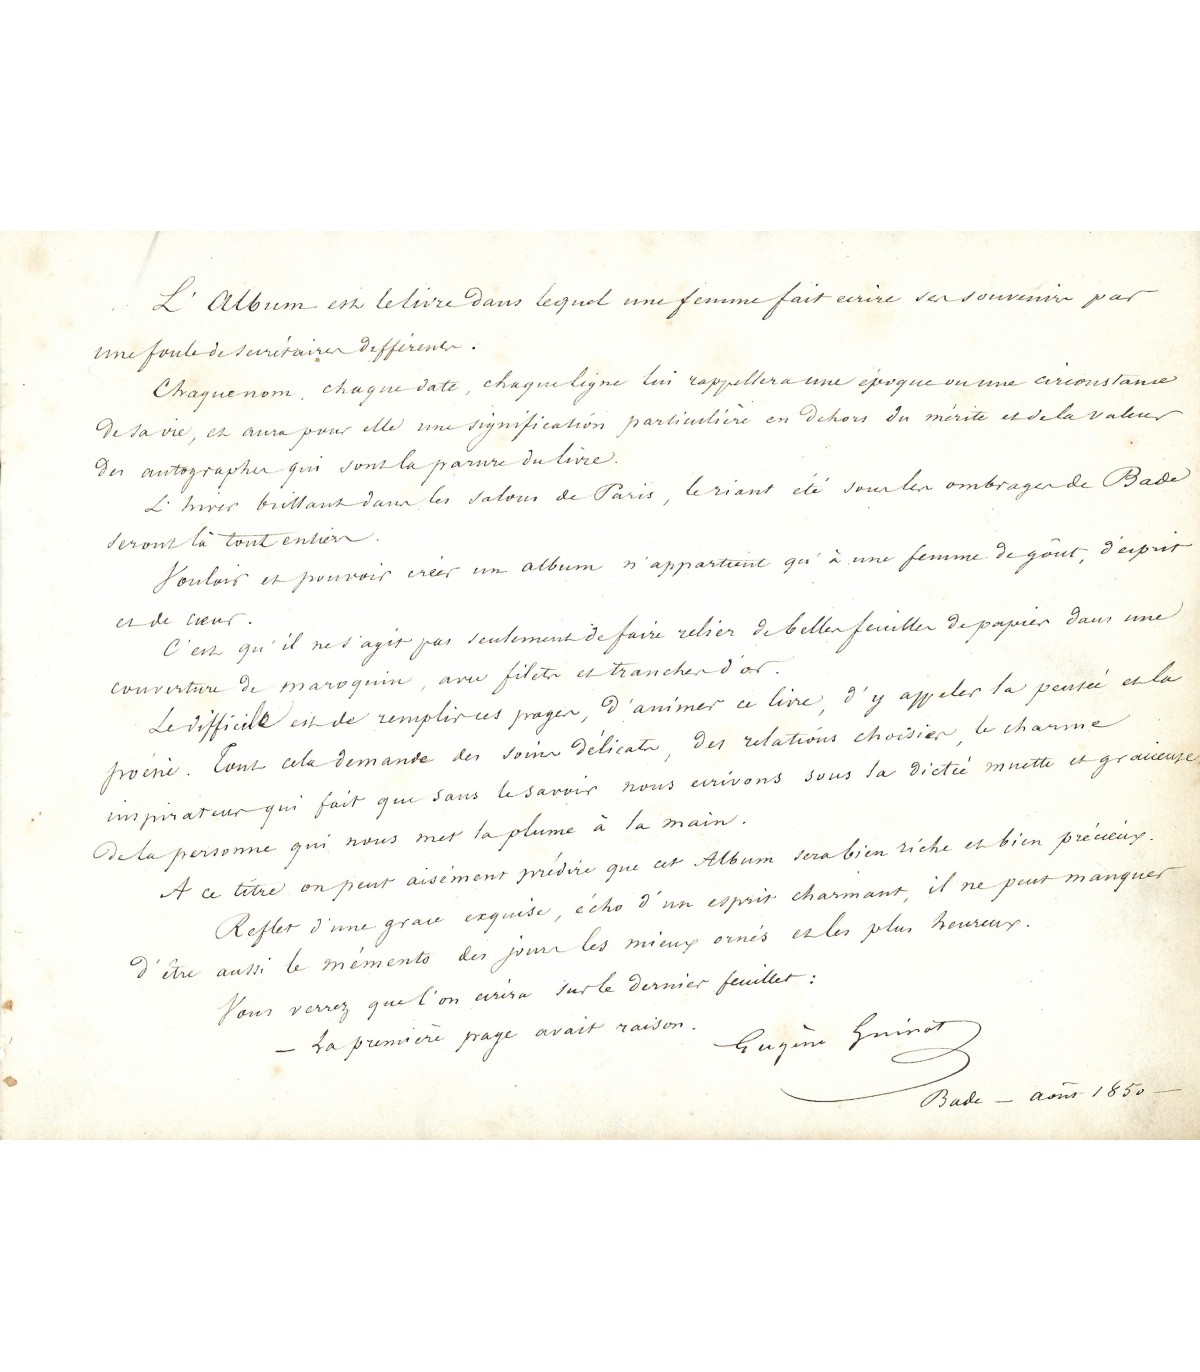 L'Album est le livre dans lequel une femme fait écrire ses souvenirs par
une foule de secrétaires différents.
Chaque nom, chaque date, chaque ligne lui rappellera une époque ou une circonstance
de sa vie, et aura pour elle une signification particulière en dehors du mérite et de la valeur
des autographes qui sont la parure du livre.
L'hiver brillant dans les salons de Paris, le riant été sous les ombrages de Bade
seront là tout entiers.
Vouloir et pouvoir créer un album n'appartient qu'à une femme de goût, d'esprit
et de cœur.
C'est qu'il ne s'agit pas seulement de faire relier de belles feuilles de papier dans une
couverture de maroquin, avec filets et tranches d'or.
Le difficile est de remplir ces pages, d'animer ce livre, d'y appeler la pensée et la
poésie. Tout cela demande des soins délicats, des relations choisies, le charme
inspirateur qui fait que sans le savoir nous écrivons sous la dictée muette et gracieuse
de la personne qui nous met la plume à la main.
A ce titre on peut aisément prédire que cet Album sera bien riche et bien précieux.
Reflet d'une grace exquise, écho d'un esprit charmant, il ne peut manquer
d'être aussi le mémento des jours les mieux ornés et les plus heureux.
Vous verrez que l'on écrira sur le dernier feuillet :
— La première page avait raison.
Eugène Guinot
Bade — août 1850 —